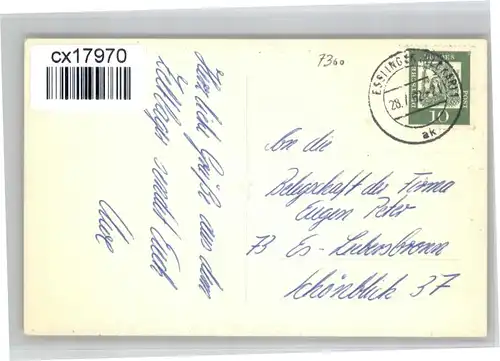 cx17970
7300
Herzliche Grüße aus dem
Zollhaus sendet Euch
Uwe
ESSLINGEN
28.
ak
DEUTSCHE
POST
10
An die
Belegschaft der Firma
Eugen Peter
73 Es-Liebersbronn
Schönblick 37